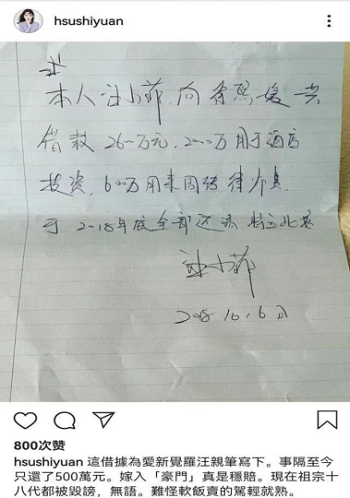 hsushiyuan
本人汪小菲,向徐熙媛共
借款2600万元,2000万用于酒店
投资,600万用来周转
于2018年底全部还清 特立此据
汪小菲
2018.10.6日
800次赞
hsushiyuan 這借據為愛新覺羅汪親筆寫下。事隔至今
只還了500萬元。嫁入「豪門」真是穩賠。現在祖宗十
八代都被毀謗，無語。難怪軟飯賣的駕輕就熟。